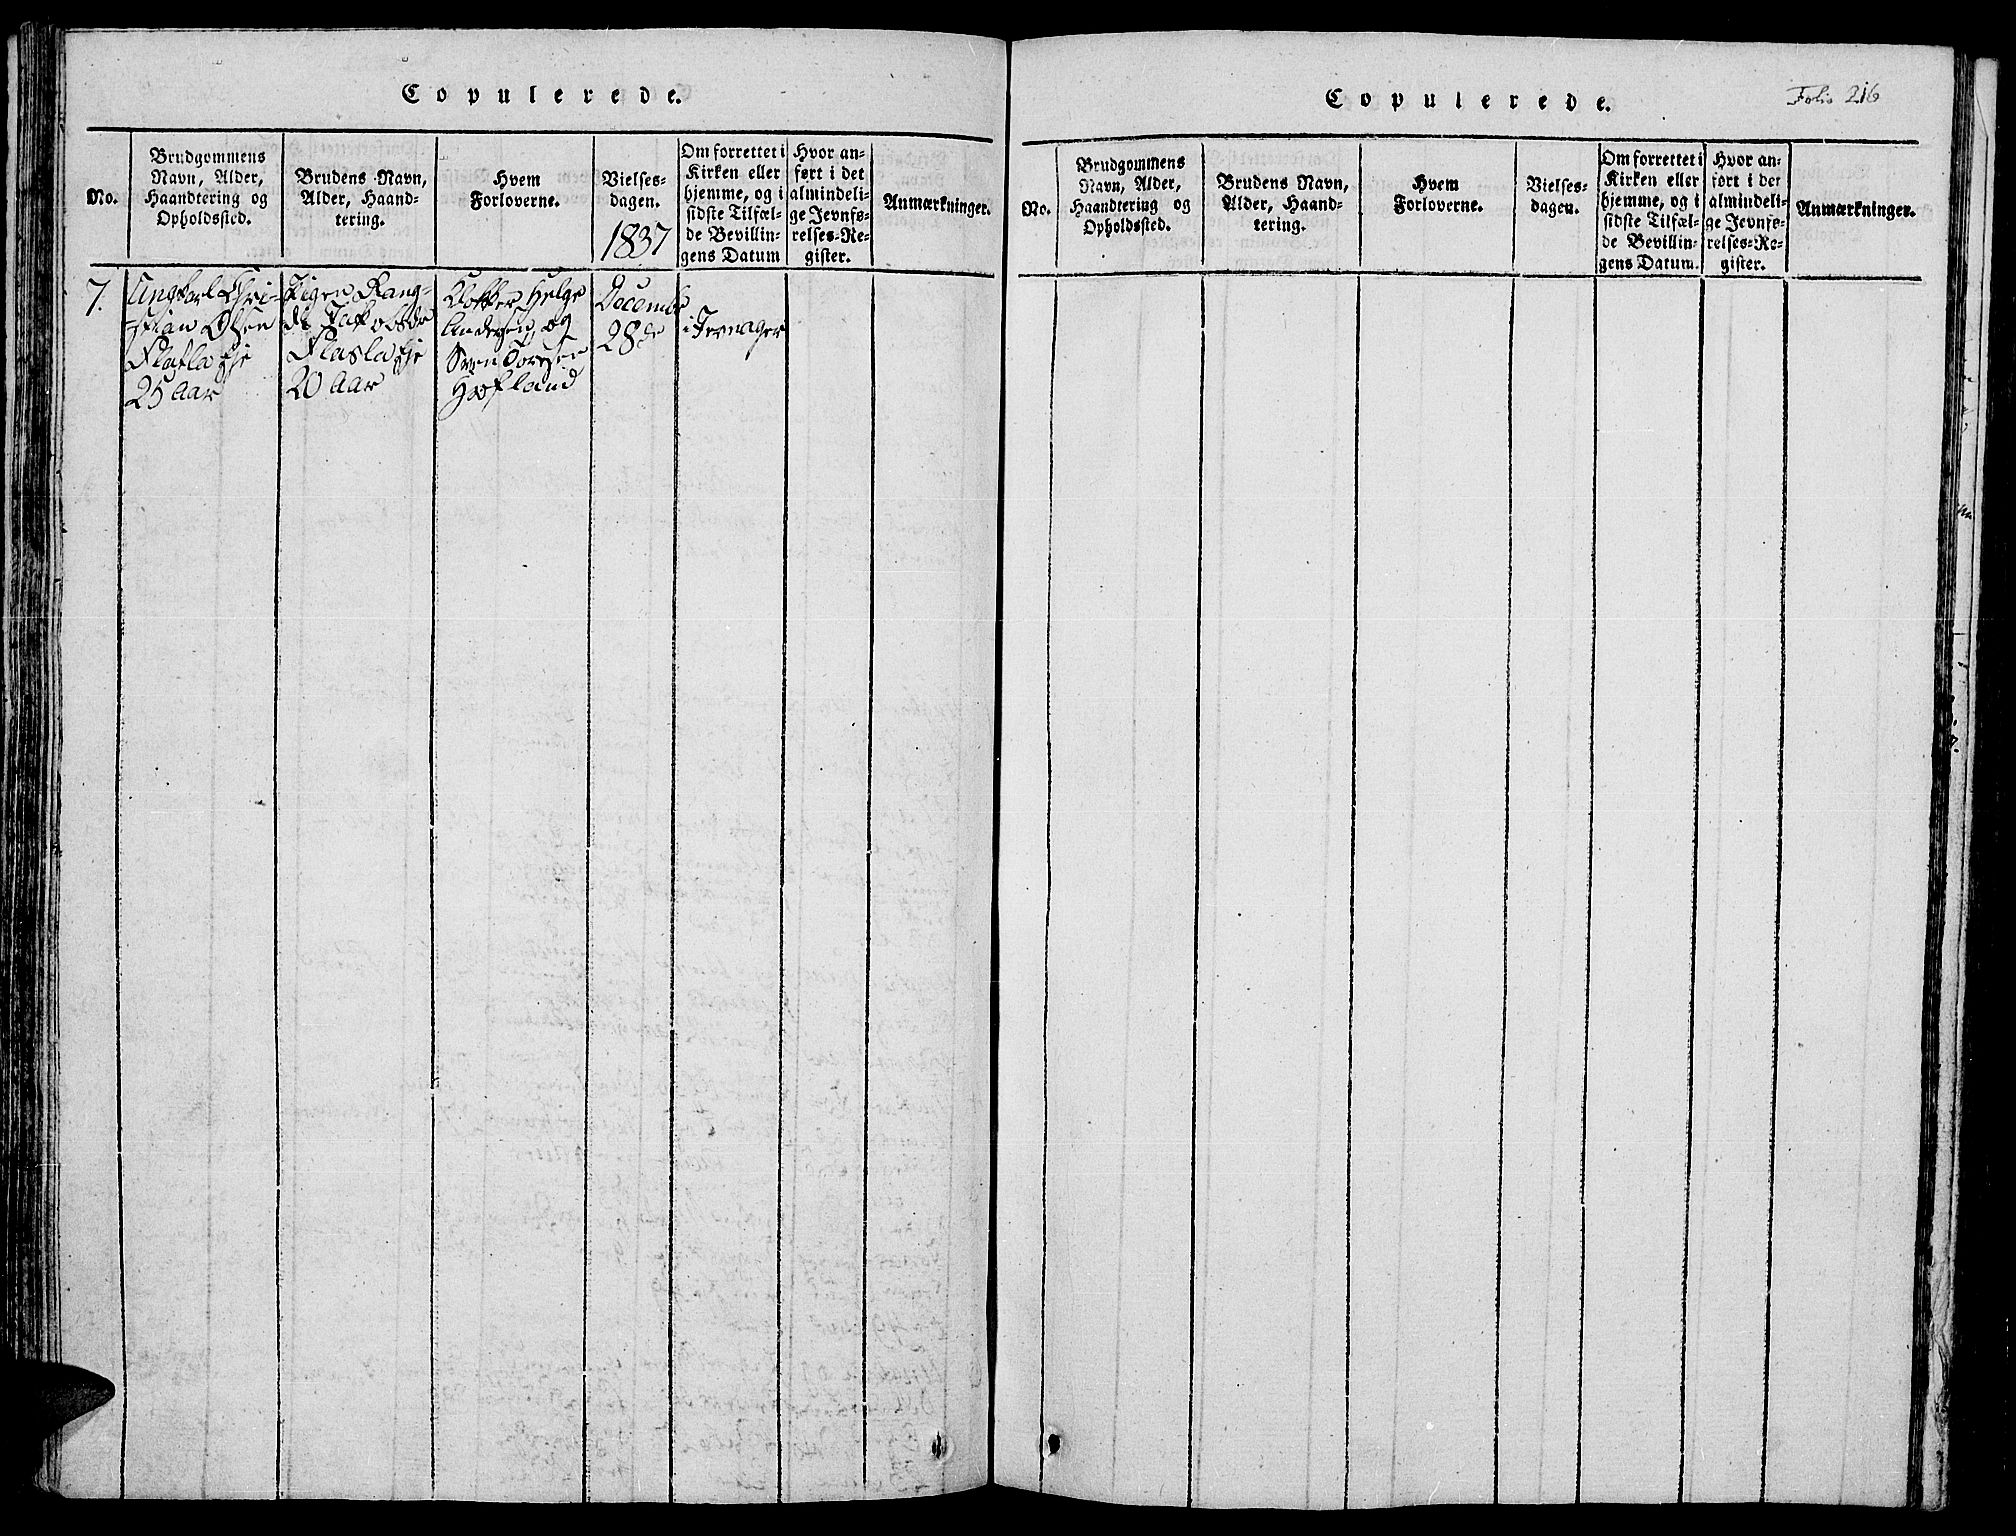 Copulerede.
No.
Brudgommens
Navn, Alder,
Haandtering og
Opholdssted.
Brudens Navn,
Alder, Haand-
tering.
Hvem
Forloverne.
Vielses-
dagen.
1837
Om forrettet i
Kirken eller
hjemme, og i
sidste Tilfæl-
de Bevillin-
gens Datum
Hvor an-
ført i det
almindeli-
ge Jevnfø-
relses-Re-
gister.
Anmærkninger.
7.
Ungkarl Chri-
stian Olsen
25 Aar
Pigen Rang-
20 Aar
Klokker Helge
Andersen, og
Sven Toresen
Høfland
Decembr
28de
i Jernager
Copulerede.
Folio 216
No.
Brudgommens
Navn, Alder,
Haandtering og
Opholdssted.
Brudens Navn,
Alder, Haand-
tering.
Hvem
Forloverne.
Vielses-
dagen.
Om forrettet i
Kirken eller
hjemme, og i
sidste Tilfæl-
de Bevillin-
gens Datum.
Hvor an-
ført i det
almindeli-
ge Jevnfø-
relses-Re-
gister.
Anmærkninger.